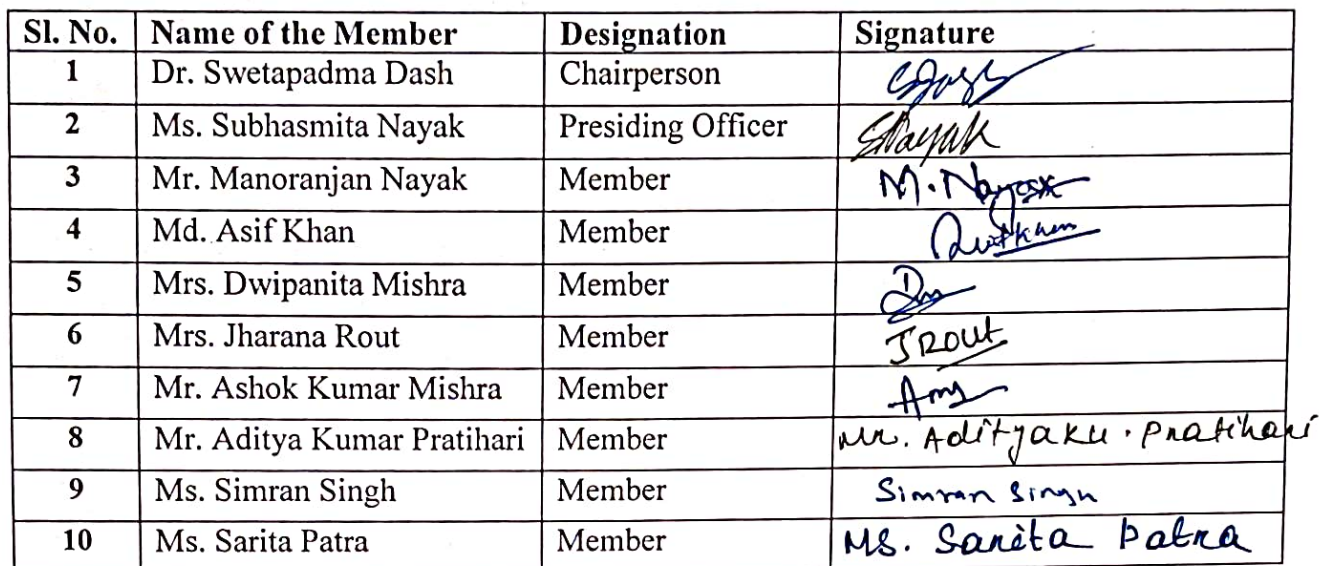 Sl. No. Name of the Member Designation Signature
1 Dr. Swetapadma Dash Chairperson
2 Ms. Subhasmita Nayak Presiding Officer SNayak
3 Mr. Manoranjan Nayak Member M. Nayak
4 Md. Asif Khan Member
5 Mrs. Dwipanita Mishra Member
6 Mrs. Jharana Rout Member JRout
7 Mr. Ashok Kumar Mishra Member
8 Mr. Aditya Kumar Pratihari Member Mr. Aditya Ku. Pratihari
9 Ms. Simran Singh Member Simran Singh
10 Ms. Sarita Patra Member Ms. Sarita Patra